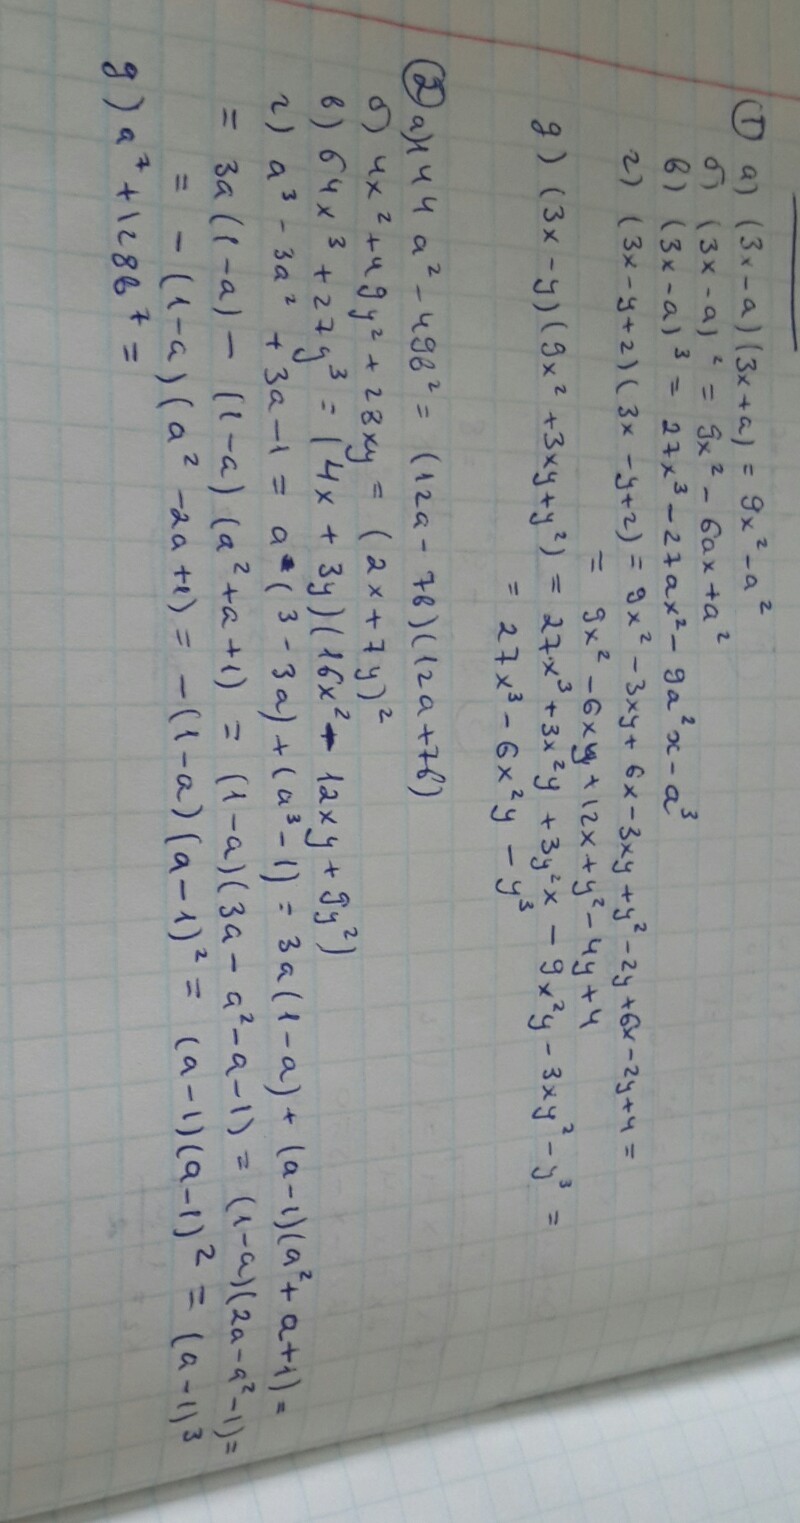 ① а) (3x-a)(3x+a) = 9x²-a²
б) (3x-a)² = 9x² - 6ax + a²
в) (3x-a)³ = 27x³ - 27ax² - 9a²x - a³
г) (3x-y+2)(3x-y+2) = 9x² - 3xy + 6x - 3xy + y² - 2y + 6x - 2y + 4 =
= 9x² - 6xy + 12x + y² - 4y + 4
д) (3x-y)(9x² + 3xy + y²) = 27x³ + 3x²y + 3y²x - 9x²y - 3xy² - y³ =
= 27x³ - 6x²y - y³
② а) 144a² - 49b² = (12a - 7b)(12a + 7b)
б) 4x² + 49y² + 28xy = (2x + 7y)²
в) 64x³ + 27y³ = (4x + 3y)(16x² - 12xy + 9y²)
г) a³ - 3a² + 3a - 1 = a·(3 - 3a) + (a³ - 1) = 3a(1-a) + (a-1)(a² + a + 1) =
= 3a(1-a) - (1-a)(a² + a + 1) = (1-a)(3a - a² - a - 1) = (1-a)(2a - a² - 1) =
= -(1-a)(a² - 2a + 1) = -(1-a)(a-1)² = (a-1)(a-1)² = (a-1)³
д) a⁷ + 128b⁷ =